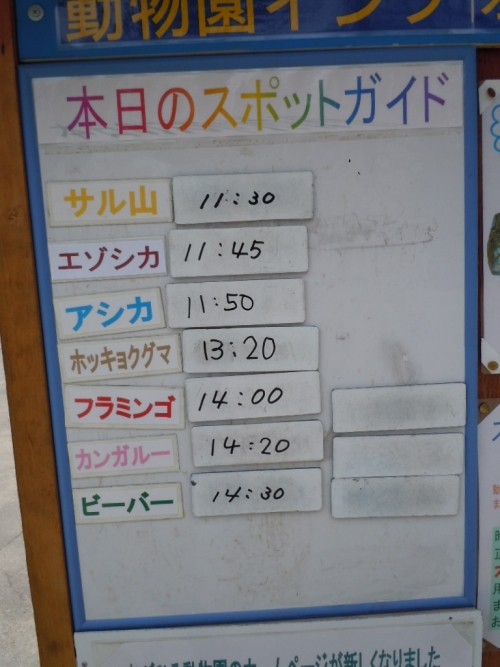 動物園インフォ
本日のスポットガイド
サル山 11:30
エゾシカ 11:45
アシカ 11:50
ホッキョクグマ 13:20
フラミンゴ 14:00
カンガルー 14:20
ビーバー 14:30
動物園のホームページが新しくなりました